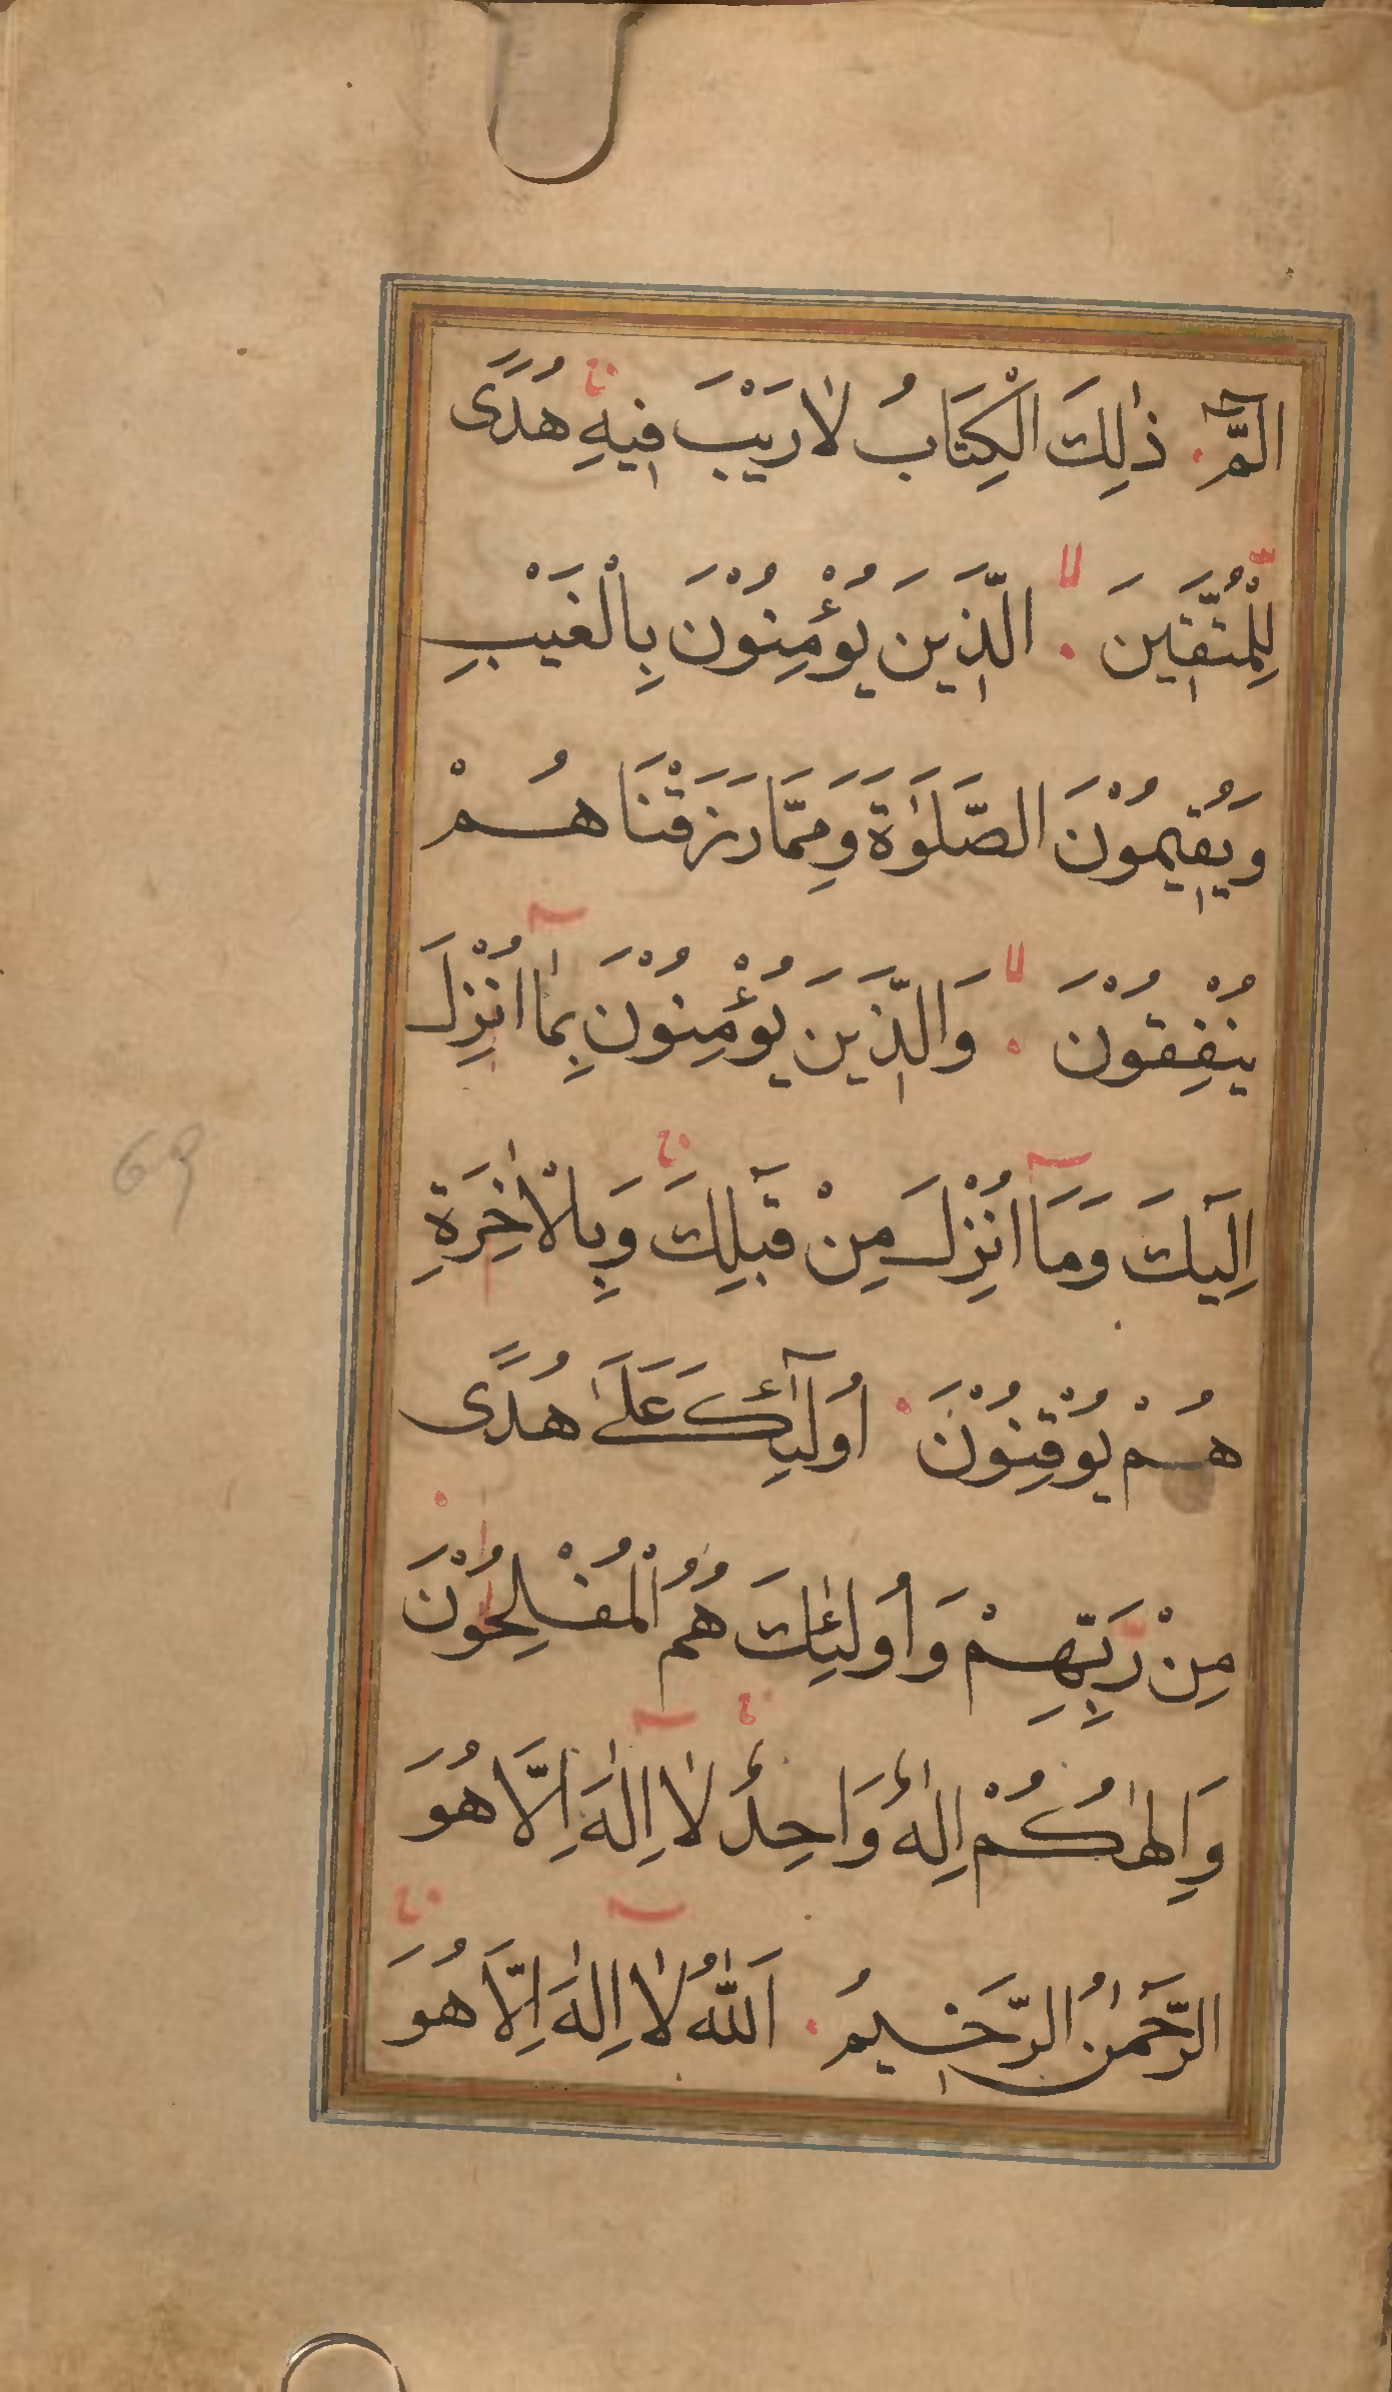 الٓمّٓ ۰ ذٰلِكَ الْكِتَابُ لَا رَيْبَ فِيهِ هُدًى
لِلْمُتَّقِينَ ۰ الَّذِينَ يُؤْمِنُوْنَ بِالْغَيْبِ
وَيُقِيمُوْنَ الصَّلَوٰةَ وَمِمَّا رَزَقْنَا هُمْ
يُنْفِقُوْنَ ۰ وَالَّذِينَ يُؤْمِنُوْنَ بِمَٰا اُنْزِلَ
اِلَيْكَ وَمَا اُنْزِلَ مِنْ قَبْلِكَ وَبِالْاٰخِرَةِ
هُمْ يُوْقِنُوْنَ ۰ اُولٰٓئِكَ عَلَىٰ هُدًى
مِنْ رَبِّهِمْ وَاُولٰئِكَ هُمُ الْمُفْلِحُوْنَ
وَاِلٰهُكُمْ اِلٰهٌ وَاحِدٌ لَا اِلٰهَ اِلَّا هُوَ
الرَّحْمٰنُ الرَّحِيمُ ۰ اَللّٰهُ لَا اِلٰهَ اِلَّا هُوَ
69